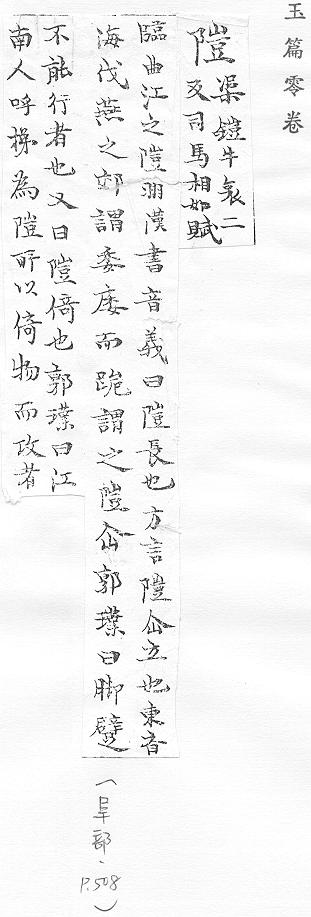 玉篇零卷
隑渠鎧牛哀二
反司馬相如賦
臨曲江之隑洲漢書音義曰隑長也方言隑企立也東齊
海伐燕之郊謂委痿而跪謂之隑企郭璞曰脚躄
不能行者也又曰隑倚也郭璞曰江
南人呼梯為隑所以倚物而改者
(阜部、P.508)